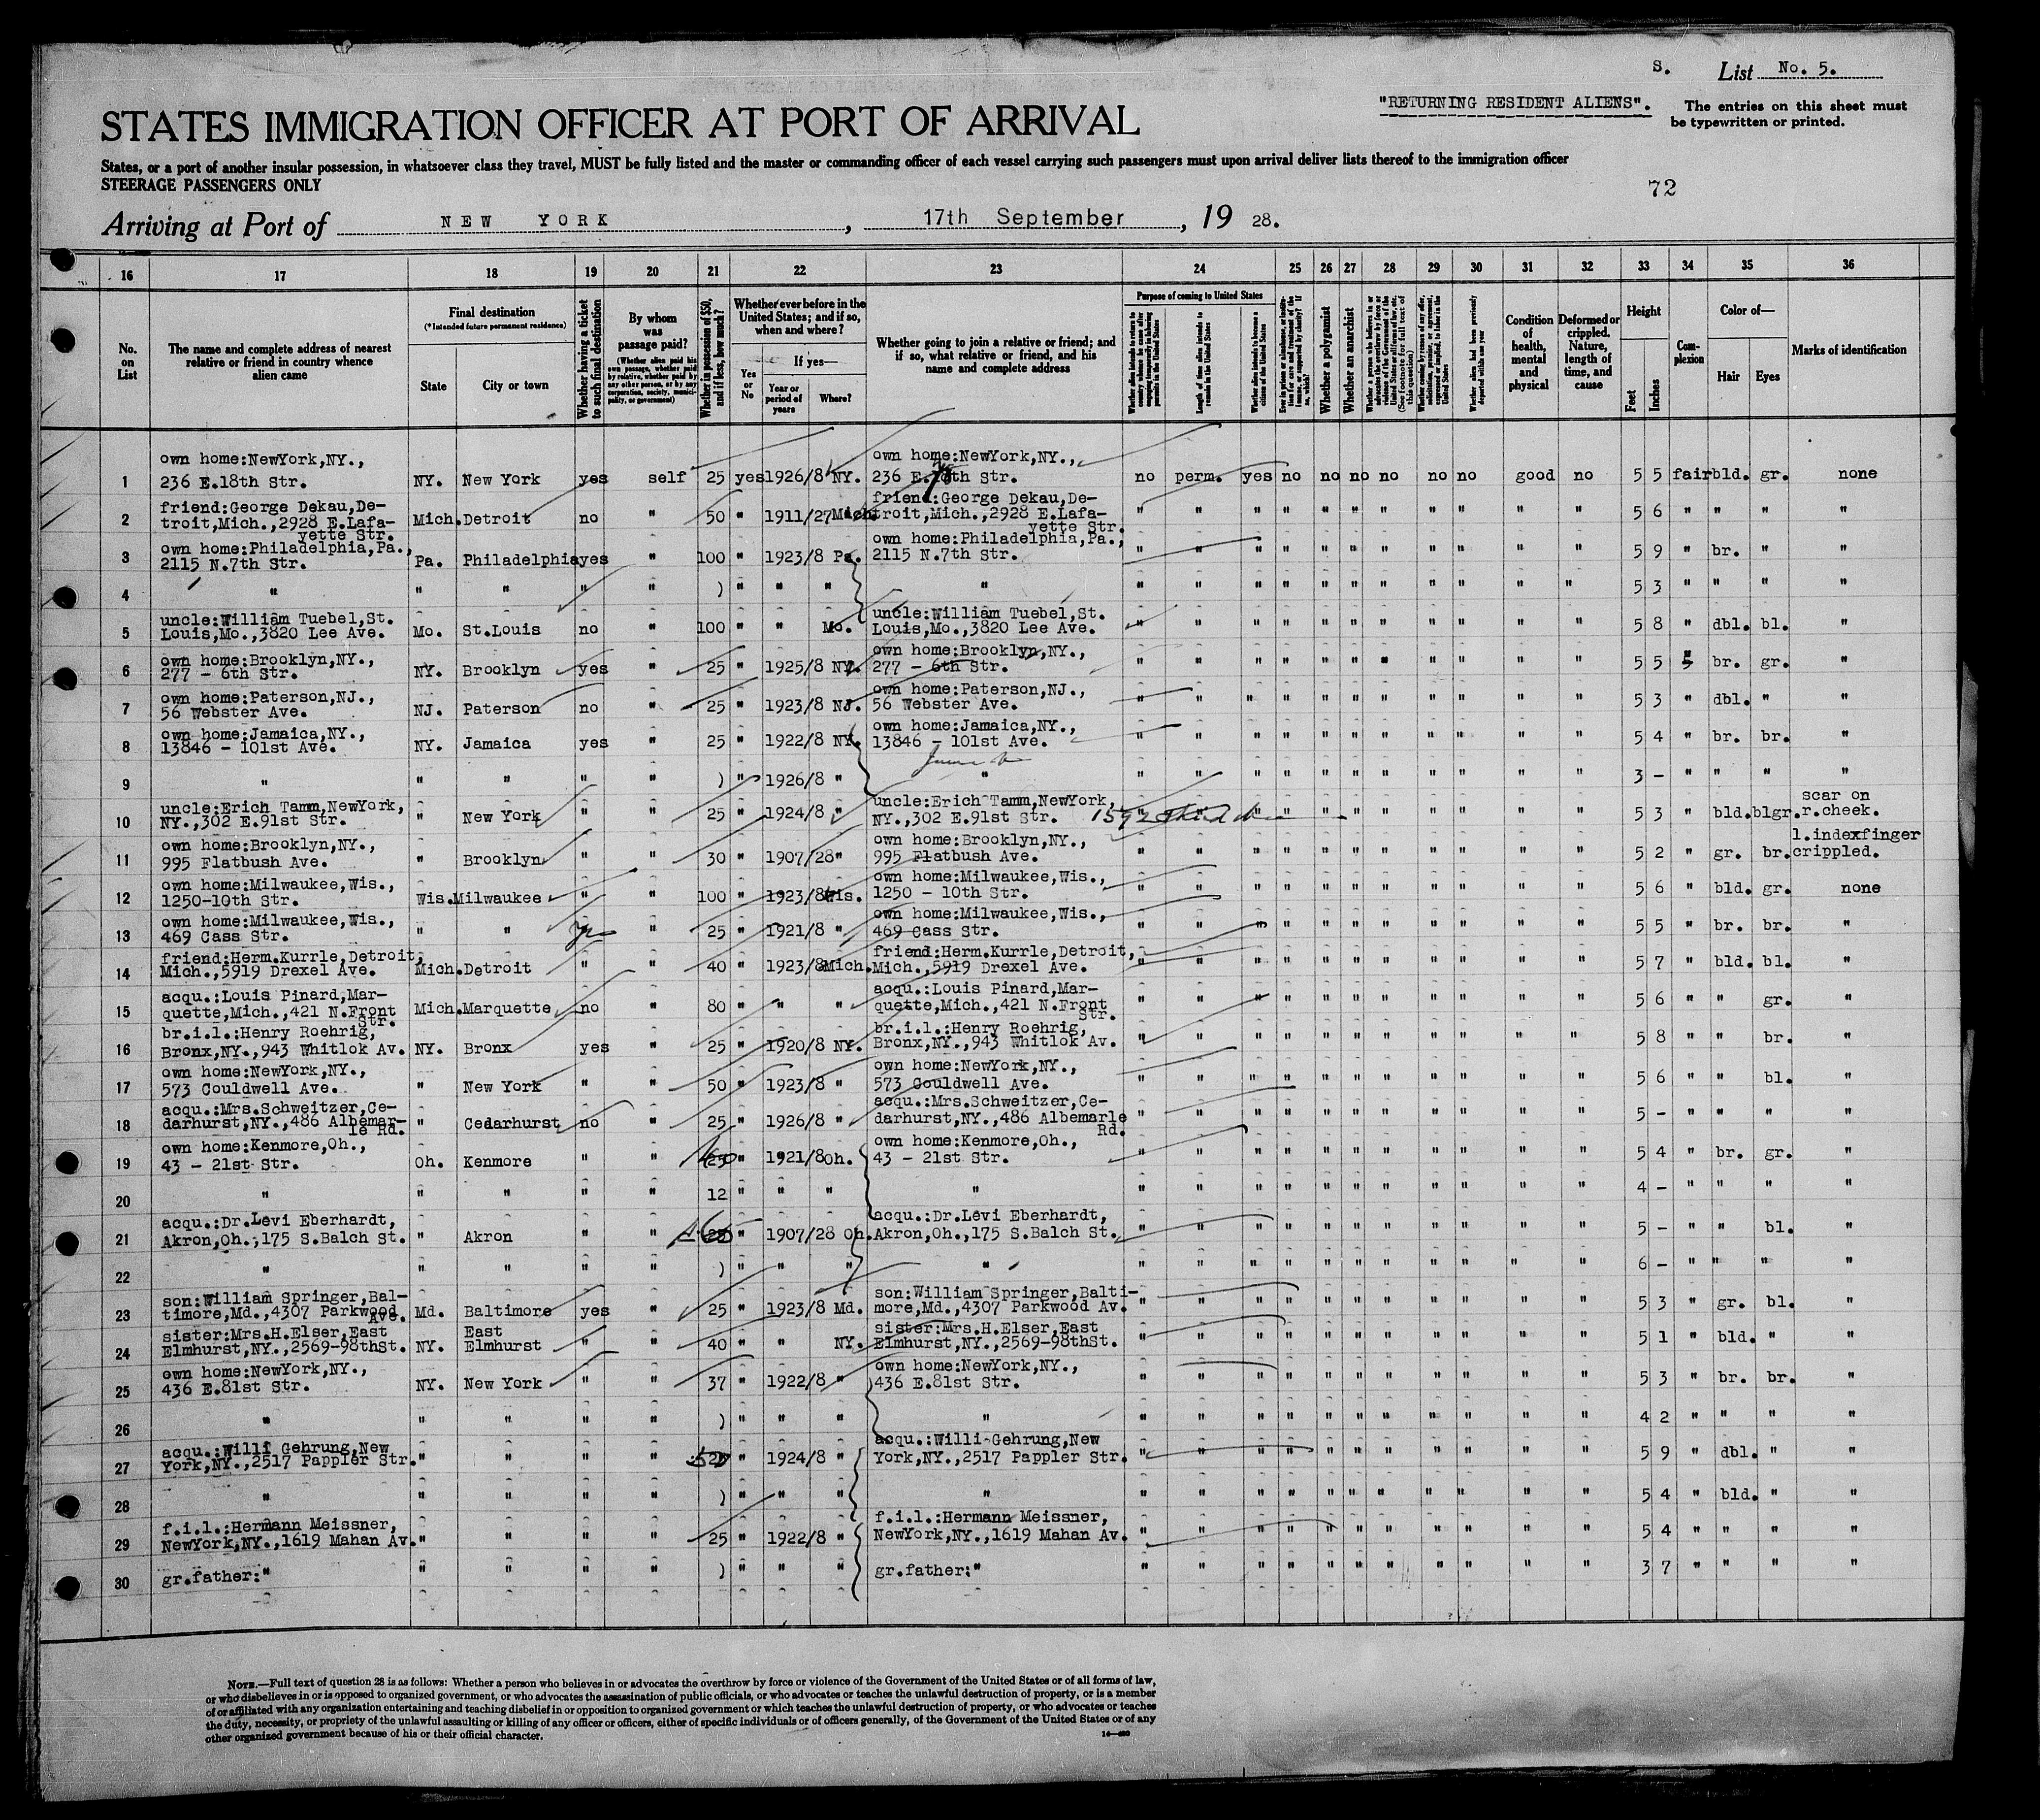 S. List No. 5.
"RETURNING RESIDENT ALIENS". The entries on this sheet must
be typewritten or printed.
STATES IMMIGRATION OFFICER AT PORT OF ARRIVAL
States, or a port of another insular possession, in whatsoever class they travel, MUST be fully listed and the master or commanding officer of each vessel carrying such passengers must upon arrival deliver lists thereof to the immigration officer
STEERAGE PASSENGERS ONLY
72
Arriving at Port of NEW YORK, 17th September, 19 28.
16 17 18 19 20 21 22 23 24 25 26 27 28 29 30 31 32 33 34 35 36
No. on List
The name and complete address of nearest relative or friend in country whence alien came
Final destination
(*Intended future permanent residence)
State
City or town
Whether having a ticket to such final destination
By whom was passage paid?
(Whether alien paid his own passage, whether paid by relative, whether paid by any other person, or by any corporation, society, municipality, or government)
Whether in possession of $50, and if less, how much?
Whether ever before in the United States; and if so, when and where?
Yes or No
If yes—
Year or period of years
Where?
Whether going to join a relative or friend; and if so, what relative or friend, and his name and complete address
Purpose of coming to United States
Length of time alien intends to remain in the United States
Whether alien intends to become a citizen of the United States
Whether a polygamist
Whether an anarchist
Condition of health, mental and physical
Deformed or crippled. Nature, length of time, and cause
Height
Feet
Inches
Complexion
Color of—
Hair
Eyes
Marks of identification
1 own home:NewYork,NY., 236 E.18th Str. NY. New York yes self 25 yes 1926/8 NY. own home:NewYork,NY., 236 E. Str. no perm. yes no no no no no no good no 5 5 fair bld. gr. none
2 friend:George Dekau,Detroit,Mich.,2928 E.Lafayette Str. Mich. Detroit no " 50 " 1911/27 Mich. friend:George Dekau,Detroit,Mich.,2928 E.Lafayette Str. " " " " " " " " " " " 5 6 " " " "
3 own home:Philadelphia,Pa., 2115 N.7th Str. Pa. Philadelphia yes " 100 " 1923/8 Pa. own home:Philadelphia,Pa., 2115 N.7th Str. " " " " " " " " " " " 5 9 " br. " "
4 " " " " " ) " " " " " " " " " " " " " " " 5 3 " " " "
5 uncle:William Tuebel,St. Louis,Mo.,3820 Lee Ave. Mo. St.Louis no " 100 " " Mo. uncle:William Tuebel,St. Louis,Mo.,3820 Lee Ave. " " " " " " " " " " " 5 8 " dbl. bl. "
6 own home:Brooklyn,NY., 277 - 6th Str. NY. Brooklyn yes " 25 " 1925/8 NY. own home:Brooklyn,NY., 277 - 6th Str. " " " " " " " " " " " 5 5 br. gr. "
7 own home:Paterson,NJ., 56 Webster Ave. NJ. Paterson no " 25 " 1923/8 NJ. own home:Paterson,NJ., 56 Webster Ave. " " " " " " " " " " " 5 3 " dbl. " "
8 own home:Jamaica,NY., 13846 - 101st Ave. NY. Jamaica yes " 25 " 1922/8 NY. own home:Jamaica,NY., 13846 - 101st Ave. " " " " " " " " " " " 5 4 " br. br. "
9 " " " " " ) " 1926/8 " " " " " " " " " " " " " 3 - " " " "
10 uncle:Erich Tamm,NewYork, NY.,302 E.91st Str. " New York " " 25 " 1924/8 " uncle:Erich Tamm,NewYork, NY.,302 E.91st Str. " " " " " " " " " " " 5 3 " bld. blgr. scar on r.cheek.
11 own home:Brooklyn,NY., 995 Flatbush Ave. " Brooklyn " " 30 " 1907/28 " own home:Brooklyn,NY., 995 Flatbush Ave. " " " " " " " " " " " 5 2 " gr. br. l.indexfinger crippled.
12 own home:Milwaukee,Wis., 1250-10th Str. Wis. Milwaukee " " 100 " 1923/8 Wis. own home:Milwaukee,Wis., 1250 - 10th Str. " " " " " " " " " " " 5 6 " bld. gr. none
13 own home:Milwaukee,Wis., 469 Cass Str. " " " 25 " 1921/8 " own home:Milwaukee,Wis., 469 Cass Str. " " " " " " " " " " " 5 5 " br. br. "
14 friend:Herm.Kurrle,Detroit, Mich.,5919 Drexel Ave. Mich. Detroit " " 40 " 1923/8 Mich. friend:Herm.Kurrle,Detroit, Mich.,5919 Drexel Ave. " " " " " " " " " " " 5 7 " bld. bl. "
15 acqu.:Louis Pinard,Marquette,Mich.,421 N.Front Str. Mich. Marquette no " 80 " " " acqu.:Louis Pinard,Marquette,Mich.,421 N.Front Str. " " " " " " " " " " " 5 6 " " gr. "
16 br.i.l.:Henry Roehrig, Bronx,NY.,943 Whitlok Av. NY. Bronx yes " 25 " 1920/8 NY. br.i.l.:Henry Roehrig, Bronx,NY.,943 Whitlok Av. " " " " " " " " " " " 5 8 " " br. "
17 own home:NewYork,NY., 573 Couldwell Ave. " New York " " 50 " 1923/8 " own home:NewYork,NY., 573 Couldwell Ave. " " " " " " " " " " " 5 6 " " bl. "
18 acqu.:Mrs.Schweitzer,Cedarhurst,NY.,486 Albemarle Rd. " Cedarhurst no " 25 " 1926/8 " acqu.:Mrs.Schweitzer,Cedarhurst,NY.,486 Albemarle Rd. " " " " " " " " " " " 5 - " " " "
19 own home:Kenmore,Oh., 43 - 21st Str. Oh. Kenmore " " " 1921/8 Oh. own home:Kenmore,Oh., 43 - 21st Str. " " " " " " " " " " " 5 4 " br. gr. "
20 " " " " " 12 " " " " " " " " " " " " " " " 4 - " " " "
21 acqu.:Dr.Levi Eberhardt, Akron,Oh.,175 S.Balch St. " Akron " " " 1907/28 Oh. acqu.:Dr.Levi Eberhardt, Akron,Oh.,175 S.Balch St. " " " " " " " " " " " 5 - " " bl. "
22 " " " " " ) " " " " " " " " " " " " " " " 6 - " " " "
23 son:William Springer,Baltimore,Md.,4307 Parkwood Ave. Md. Baltimore yes " 25 " 1923/8 Md. son:William Springer,Baltimore,Md.,4307 Parkwood Av. " " " " " " " " " " " 5 3 " gr. bl. "
24 sister:Mrs.H.Elser,East Elmhurst,NY.,2569-98thSt. NY. East Elmhurst " " 40 " " NY. sister:Mrs.H.Elser,East Elmhurst,NY.,2569-98thSt. " " " " " " " " " " " 5 1 " bld. " "
25 own home:NewYork,NY., 436 E.81st Str. NY. New York " " 37 " 1922/8 " own home:NewYork,NY., 436 E.81st Str. " " " " " " " " " " " 5 3 " br. br. "
26 " " " " " ) " " " " " " " " " " " " " " " 4 2 " " " "
27 acqu.:Willi Gehrung,New York,NY.,2517 Pappler Str. " " " " " 1924/8 " acqu.:Willi Gehrung,New York,NY.,2517 Pappler Str. " " " " " " " " " " " 5 9 " dbl. " "
28 " " " " " ) " " " " " " " " " " " " " " " 5 4 " bld. " "
29 f.i.l.:Hermann Meissner, NewYork,NY.,1619 Mahan Av. " " " " 25 " 1922/8 " f.i.l.:Hermann Meissner, NewYork,NY.,1619 Mahan Av. " " " " " " " " " " " 5 4 " " " "
30 gr.father:" " " " " ) " " " gr.father:" " " " " " " " " " " " 3 7 " " " "
NOTE.—Full text of question 28 is as follows: Whether a person who believes in or advocates the overthrow by force or violence of the Government of the United States or of all forms of law,
or who disbelieves in or is opposed to organized government, or who advocates the assassination of public officials, or who advocates or teaches the unlawful destruction of property, or is a member
of or affiliated with any organization entertaining and teaching disbelief in or opposition to organized government or which teaches the unlawful destruction of property, or who advocates or teaches
the duty, necessity, or propriety of the unlawful assaulting or killing of any officer or officers, either of specific individuals or of officers generally, of the Government of the United States or of any
other organized government because of his or their official character.